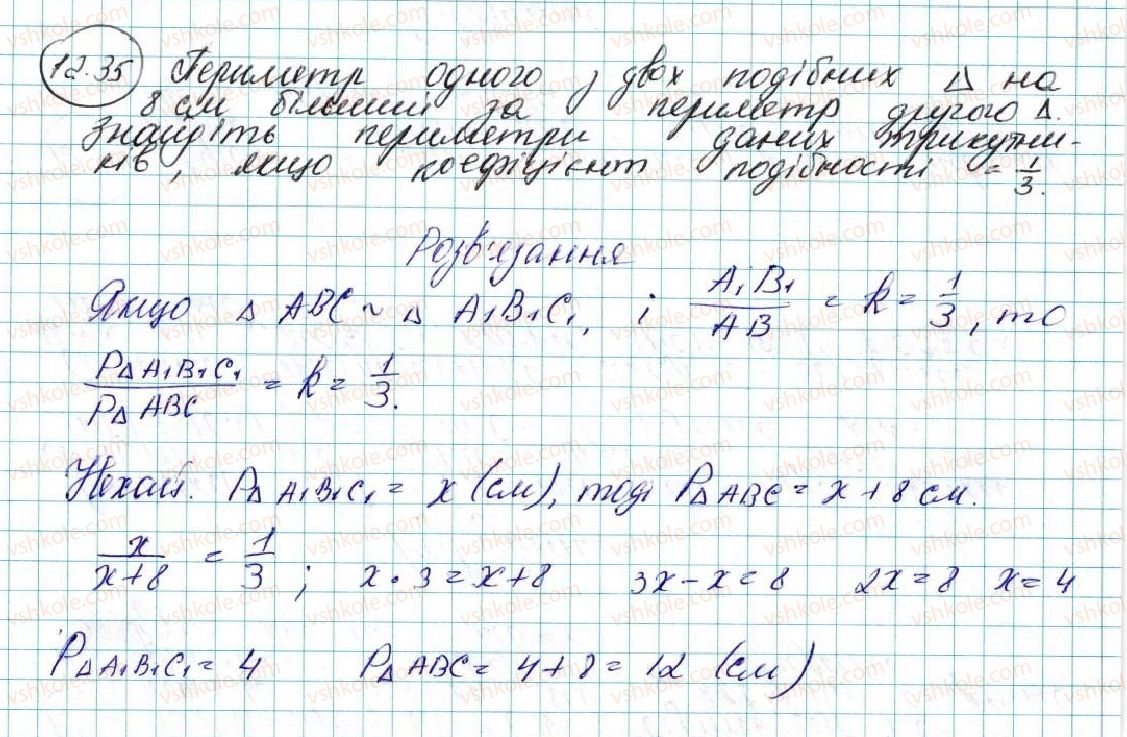 12.35 Периметр одного з двох подібних Δ на
8 см більший за периметр другого Δ.
Знайдіть периметри даних трикутни-
ків, якщо коефіцієнт подібності = 1/3.
Розв'язання
Якщо Δ ABC ~ Δ A₁B₁C₁, і A₁B₁/AB = k = 1/3, то
PΔ A₁B₁C₁/PΔ ABC = k = 1/3.
Нехай. PΔ A₁B₁C₁ = x (см), тоді PΔ ABC = x + 8 см.
x/x+8 = 1/3; x • 3 = x + 8 3x - x = 8 2x = 8 x = 4
PΔ A₁B₁C₁ = 4 PΔ ABC = 4 + 8 = 12 (см)